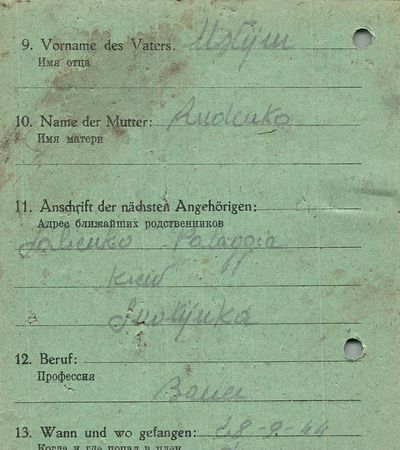 9. Vorname des Vaters.
Имя отца
10. Name der Mutter: Rudenko
Имя матери
11. Anschrift der nächsten Angehörigen:
Адрес ближайших родственников
Palaggia
Kiew
12. Beruf:
Профессия
Bauer
13. Wann und wo gefangen: 28-9-44
Когда и где попал в плен